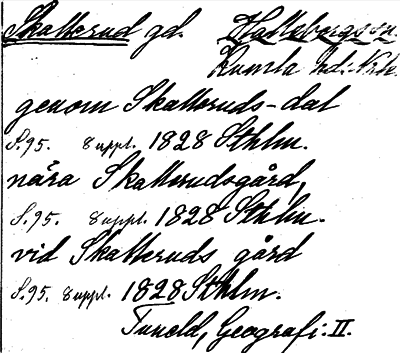 Skatterud gd. Hallsbergs sn.
Kumla hd: Nrk.
genom Skatteruds-dal
S. 95. 8 uppl. 1828 Sthlm.
nära Skatterudsgård,
S. 95. 8 uppl. 1828 Sthlm.
vid Skatteruds gård
S. 95. 8 uppl. 1828 Sthlm.
Tuneld, Geografi. II.